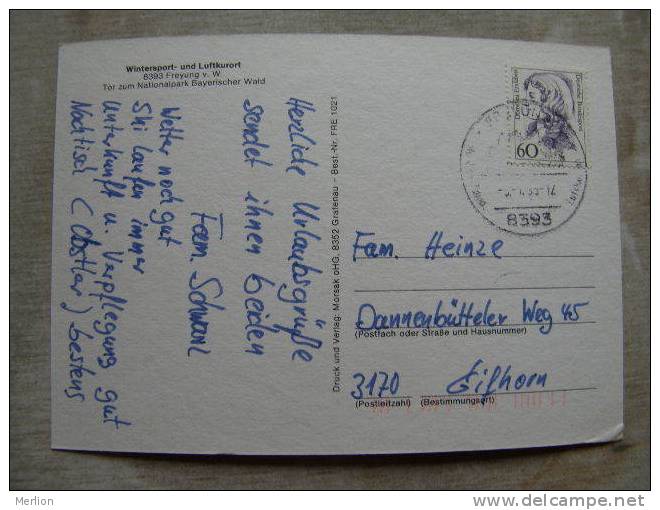 Wintersport- und Luftkurort
8393 Freyung v. W
Tor zum Nationalpark Bayerischer Wald
Herzliche Urlaubsgrüße
sendet ihnen beiden
Fam.
Wetter noch gut
Ski laufen immer
Unterkunft u. Verpflegung gut
Nachtisch ( ) bestens
Druck und Verlag: Morsak oHG, 8352 Grafenau – Best.-Nr. FRE 1021
Deutsche Bundespost
60
8393
Fam. Heinze
Dannenbütteler Weg 45
(Postfach oder Straße und Hausnummer)
3170 Gifhorn
(Postleitzahl) (Bestimmungsort)
Merlion
www.delcampe.net